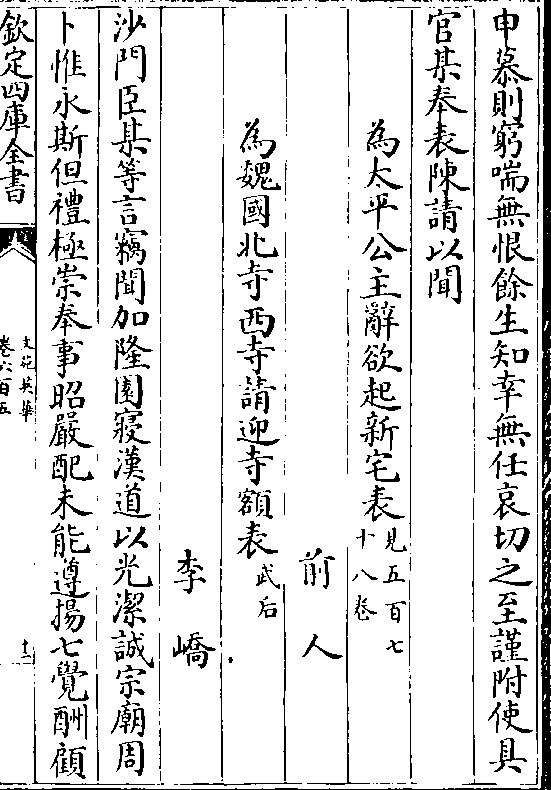 申慕則窮喘無恨餘生知幸無任哀切之至謹附使具
官某奉表陳請以聞
為太平公主辭欲起新宅表見五百七
十八卷
前人
為魏國北寺西寺請迎寺額表武后
李嶠
沙門臣某等言竊聞加隆園寢漢道以光潔誠宗廟周
卜惟永斯但禮極崇奉事昭嚴配未能遵揚七覺酬顧
欽定四庫全書
文苑英華
卷六百五
十二